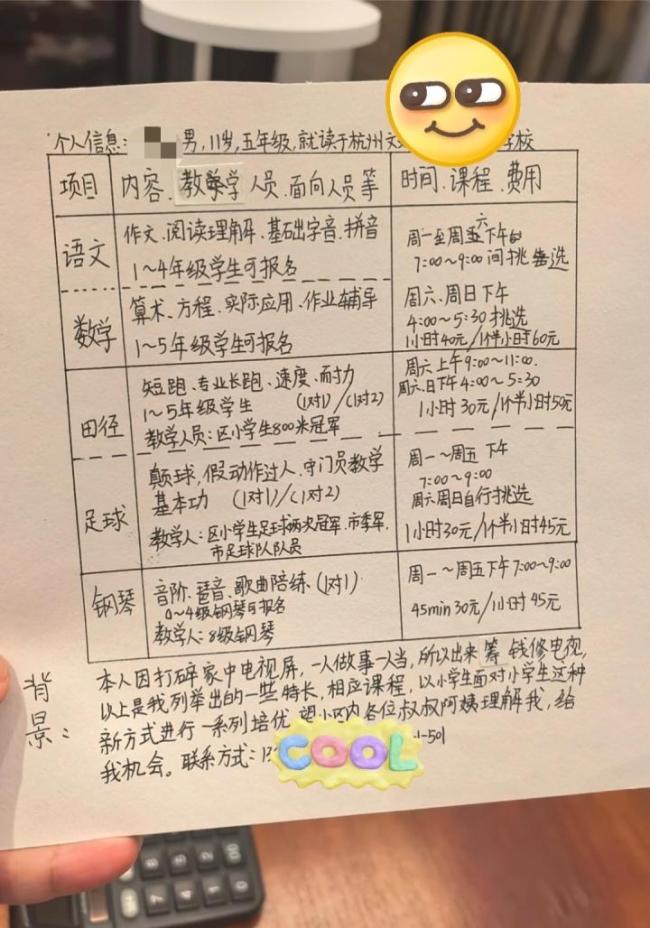 个人信息: 男,11岁,五年级,就读于杭州文 学校
项目 内容、教学人员.面向人员等 时间、课程、费用
语文
作文、阅读理解、基础字音、拼音
1~4年级学生可报名
周一至周六下午
7:00~9:00间挑选
数学
算术、方程、实际应用、作业辅导
1~5年级学生可报名
周六、周日下午
4:00~5:30挑选
1小时40元/1个半小时60元
田径
短跑、专业长跑、速度、耐力
1~5年级学生 (1对1)/(1对2)
教学人员:区小学生800米冠军
周六上午9:00~11:00.
周六.日下午4:00~5:30
1小时30元/1个半小时50元
足球
颠球,假动作过人、守门员教学
基本功 (1对1)/(1对2)
教学人:区小学生足球两次冠军、市季军、
市足球队队员
周一~周五 下午
7:00~9:00
周六周日自行挑选
1小时30元/1个半小时45元
钢琴
音阶、琶音、歌曲陪练、(1对1)
0~4级钢琴可报名
教学人:8级钢琴
周一~周五下午7:00~9:00
45min30元/1小时45元
背景:
本人因打碎家中电视屏,一人做事一人当,所以出来筹钱修电视,
以上是我列举出的一些特长,相应课程,以小学生面对小学生这种
新方式进行一系列培优.望小区内各位叔叔阿姨理解我,给
我机会。联系方式:13 -501
COOL